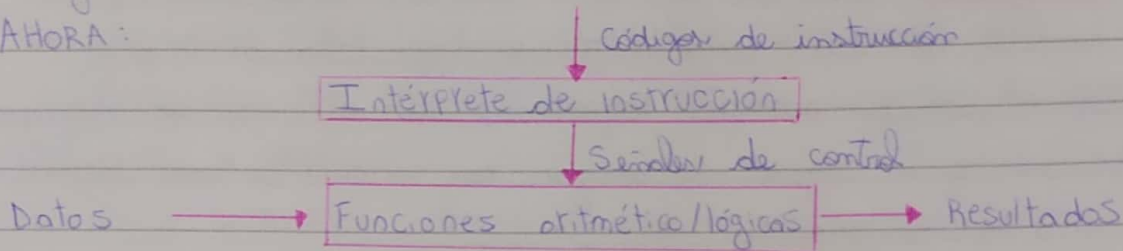 AHORA:
Códigos de instrucción
Intérprete de instrucción
Señales de control
Datos
Funciones aritmético/lógicas
Resultados